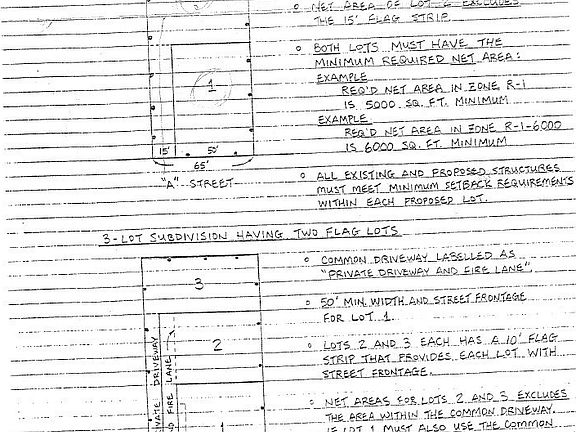 NET AREA OF LOT 2 EXCLUDES
THE 15' FLAG STRIP.
BOTH LOTS MUST HAVE THE
MINIMUM REQUIRED NET AREA:
EXAMPLE
REQ'D NET AREA IN ZONE R-1
IS 5000 SQ. FT. MINIMUM
EXAMPLE
REQ'D NET AREA IN ZONE R-1-6000
IS 6000 SQ. FT. MINIMUM
1
15'
50'
65'
"A" STREET
ALL EXISTING AND PROPOSED STRUCTURES
MUST MEET MINIMUM SETBACK REQUIREMENTS
WITHIN EACH PROPOSED LOT.
3-LOT SUBDIVISION HAVING TWO FLAG LOTS
3
2
DRIVEWAY
FIRE LANE
COMMON DRIVEWAY LABELLED AS
"PRIVATE DRIVEWAY AND FIRE LANE".
50' MIN. WIDTH AND STREET FRONTAGE
FOR LOT 1.
LOTS 2 AND 3 EACH HAS A 10' FLAG
STRIP THAT PROVIDES EACH LOT WITH
STREET FRONTAGE.
NET AREAS FOR LOTS 2 AND 3 EXCLUDES
THE AREA WITHIN THE COMMON DRIVEWAY.
IF LOT 1 MUST ALSO USE THE COMMON